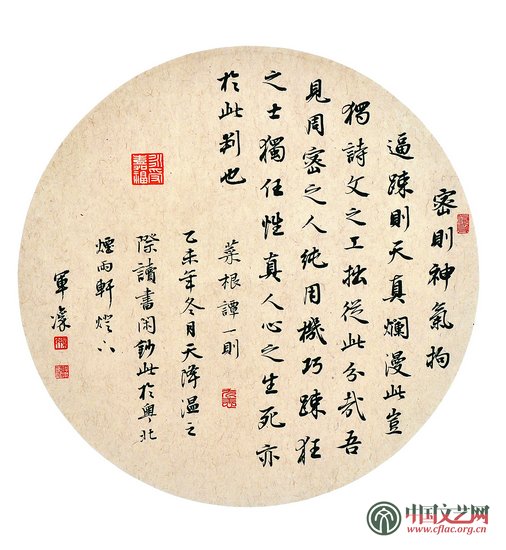 密則神氣拘
逼踈則天真爛漫此豈
獨詩文之工拙從此分哉吾
見周密之人純用機巧踈狂
之士獨任性真人心之生死亦
於此判也
菜根譚一則
乙未年冬月天降温之
際讀書闲鈔此於粤北
煙雨軒燈下
軍濠
中国文艺网
www.cflac.org.cn